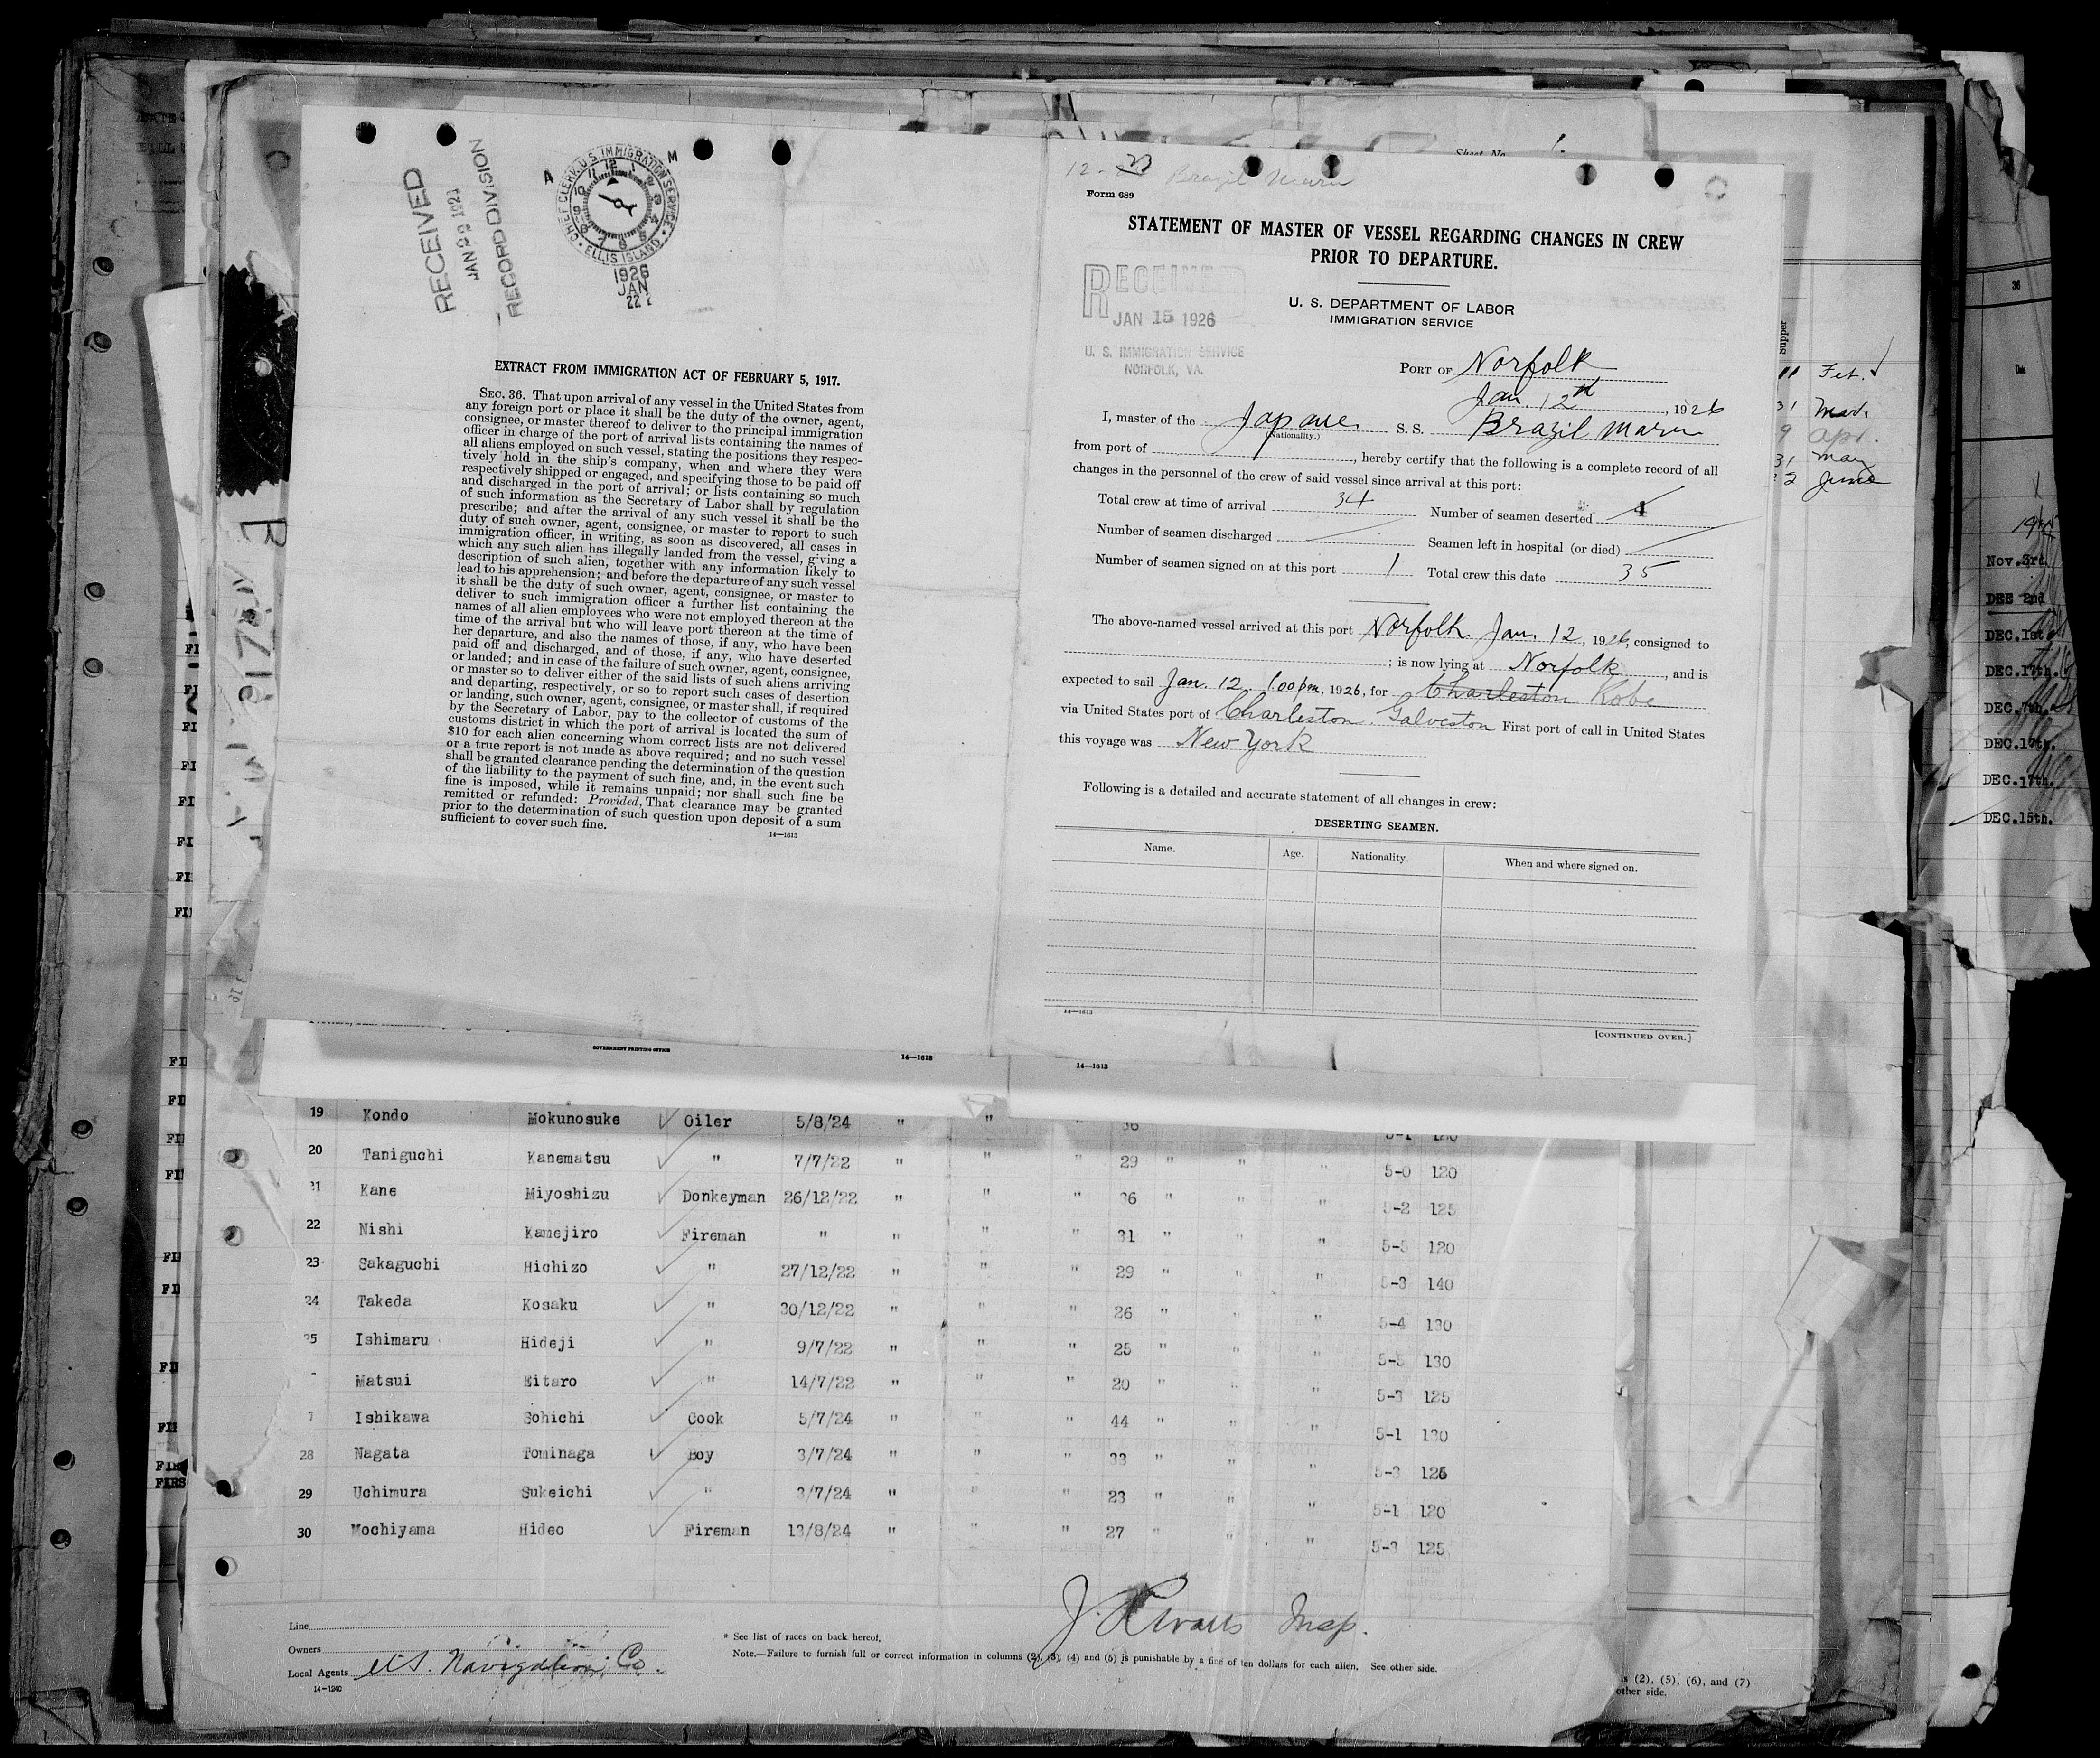 RECEIVED
RECORD DIVISION
CHIEF CLERK U.S. IMMIGRATION SERVICE
ELLIS ISLAND
A M
1926
JAN
22
EXTRACT FROM IMMIGRATION ACT OF FEBRUARY 5, 1917.
SEC. 36. That upon arrival of any vessel in the United States from
any foreign port or place it shall be the duty of the owner, agent,
consignee, or master thereof to deliver to the principal immigration
officer in charge of the port of arrival lists containing the names of
all aliens employed on such vessel, stating the positions they respec-
tively hold in the ship's company, when and where they were
respectively shipped or engaged, and specifying those to be paid off
and discharged in the port of arrival; or lists containing so much
of such information as the Secretary of Labor shall by regulation
prescribe; and after the arrival of any such vessel it shall be the
duty of such owner, agent, consignee, or master to report to such
immigration officer, in writing, as soon as discovered, all cases in
which any such alien has illegally landed from the vessel, giving a
description of such alien, together with any information likely to
lead to his apprehension; and before the departure of any such vessel
it shall be the duty of such owner, agent, consignee, or master to
deliver to such immigration officer a further list containing the
names of all alien employees who were not employed thereon at the
time of the arrival but who will leave port thereon at the time of
her departure, and also the names of those, if any, who have been
paid off and discharged, and of those, if any, who have deserted
or landed; and in case of the failure of such owner, agent, consignee,
or master so to deliver either of the said lists of such aliens arriving
and departing, respectively, or so to report such cases of desertion
or landing, such owner, agent, consignee, or master shall, if required
by the Secretary of Labor, pay to the collector of customs of the
customs district in which the port of arrival is located the sum of
$10 for each alien concerning whom correct lists are not delivered
or a true report is not made as above required; and no such vessel
shall be granted clearance pending the determination of the question
of the liability to the payment of such fine, and, in the event such
fine is imposed, while it remains unpaid; nor shall such fine be
remitted or refunded: Provided, That clearance may be granted
prior to the determination of such question upon deposit of a sum
sufficient to cover such fine.
14—1613
Brazil Maru
Form 689
STATEMENT OF MASTER OF VESSEL REGARDING CHANGES IN CREW
PRIOR TO DEPARTURE.
RECEIVED
JAN 15 1926
U. S. IMMIGRATION SERVICE
NORFOLK, VA.
U. S. DEPARTMENT OF LABOR
IMMIGRATION SERVICE
PORT OF Norfolk
Jan. 12th, 1926
I, master of the Japane S. S. Brazil Maru
(Nationality.)
from port of , hereby certify that the following is a complete record of all
changes in the personnel of the crew of said vessel since arrival at this port:
Total crew at time of arrival 34 Number of seamen deserted
Number of seamen discharged Seamen left in hospital (or died)
Number of seamen signed on at this port 1 Total crew this date 35
The above-named vessel arrived at this port Norfolk Jan. 12, 1926, consigned to
; is now lying at Norfolk, and is
expected to sail Jan. 12 1.00 pm, 1926, for Charleston Kobe
via United States port of Charleston. Galveston First port of call in United States
this voyage was New York
Following is a detailed and accurate statement of all changes in crew:
DESERTING SEAMEN.
Name. Age. Nationality. When and where signed on.
14—1613
[CONTINUED OVER.]
GOVERNMENT PRINTING OFFICE 14—1613 14—1613
19 Kondo Mokunosuke Oiler 5/8/24 " " " 36 5-1 120
20 Taniguchi Kanematsu " 7/7/22 " " " 29 " " " 5-0 120
21 Kane Miyoshizu Donkeyman 26/12/22 " " " 36 " " " 5-2 125
22 Nishi Kamejiro Fireman " " " " 31 " " 5-5 120
23 Sakaguchi Hichizo " 27/12/22 " " " 29 " " " 5-3 140
24 Takeda Kosaku " 30/12/22 " " " 26 " " " 5-4 130
25 Ishimaru Hideji " 9/7/22 " " " 25 " " " 5-5 130
Matsui Eitaro " 14/7/22 " " " 20 " " " 5-3 125
7 Ishikawa Sohichi Cook 5/7/24 " " " 44 " " " 5-1 130
28 Nagata Tominaga Boy 3/7/24 " " " 33 " " " 5-3 125
29 Uchimura Sukeichi " 3/7/24 " " " 23 " " " 5-1 120
30 Mochiyama Hideo Fireman 13/8/24 " " " 27 " " " 5-3 125
Insp.
Line
Owners
Local Agents U.S. Navigation Co.
14-1240
* See list of races on back hereof.
Note.—Failure to furnish full or correct information in columns (2), (3), (4) and (5) is punishable by a fine of ten dollars for each alien. See other side.
(2), (5), (6), and (7)
other side.
Sheet No.
Supper
11 Feb.
31 Mar.
9 Apr.
31 May
2 June
36
Nov.3rd.
DES 2nd
DEC.1st
DEC.17th.
DEC.7th.
DEC.17th.
DEC.17th.
DEC.15th.